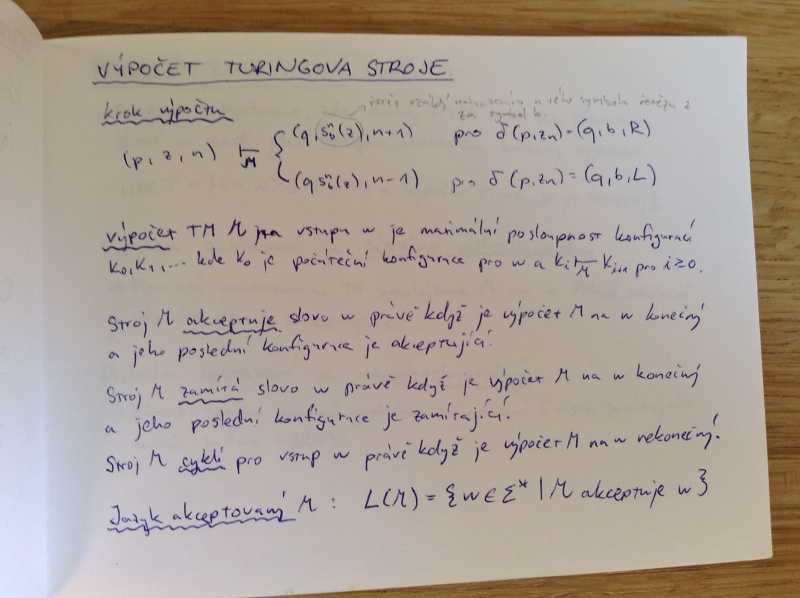 VÝPOČET TURINGOVA STROJE
krok výpočtu
řetěz vzniklý nahrazením n-tého symbolu řetězu z
za symbol b.
(p, z, n) ⊢M { (q, sⁿb(z), n+1) pro δ(p, zn) = (q, b, R)
(q sⁿb(z), n-1) pro δ(p, zn) = (q, b, L)
výpočet TM M na vstupu w je maximální posloupnost konfigurací
K0, K1, ... kde K0 je počáteční konfigurace pro w a Ki ⊢M Ki+1 pro i≥0.
Stroj M akceptuje slovo w právě když je výpočet M na w konečný
a jeho poslední konfigurace je akceptující.
Stroj M zamítá slovo w právě když je výpočet M na w konečný
a jeho poslední konfigurace je zamítající.
Stroj M cyklí pro vstup w právě když je výpočet M na w nekonečný.
Jazyk akceptovaný M : L(M) = {w ∈ Σ* | M akceptuje w}